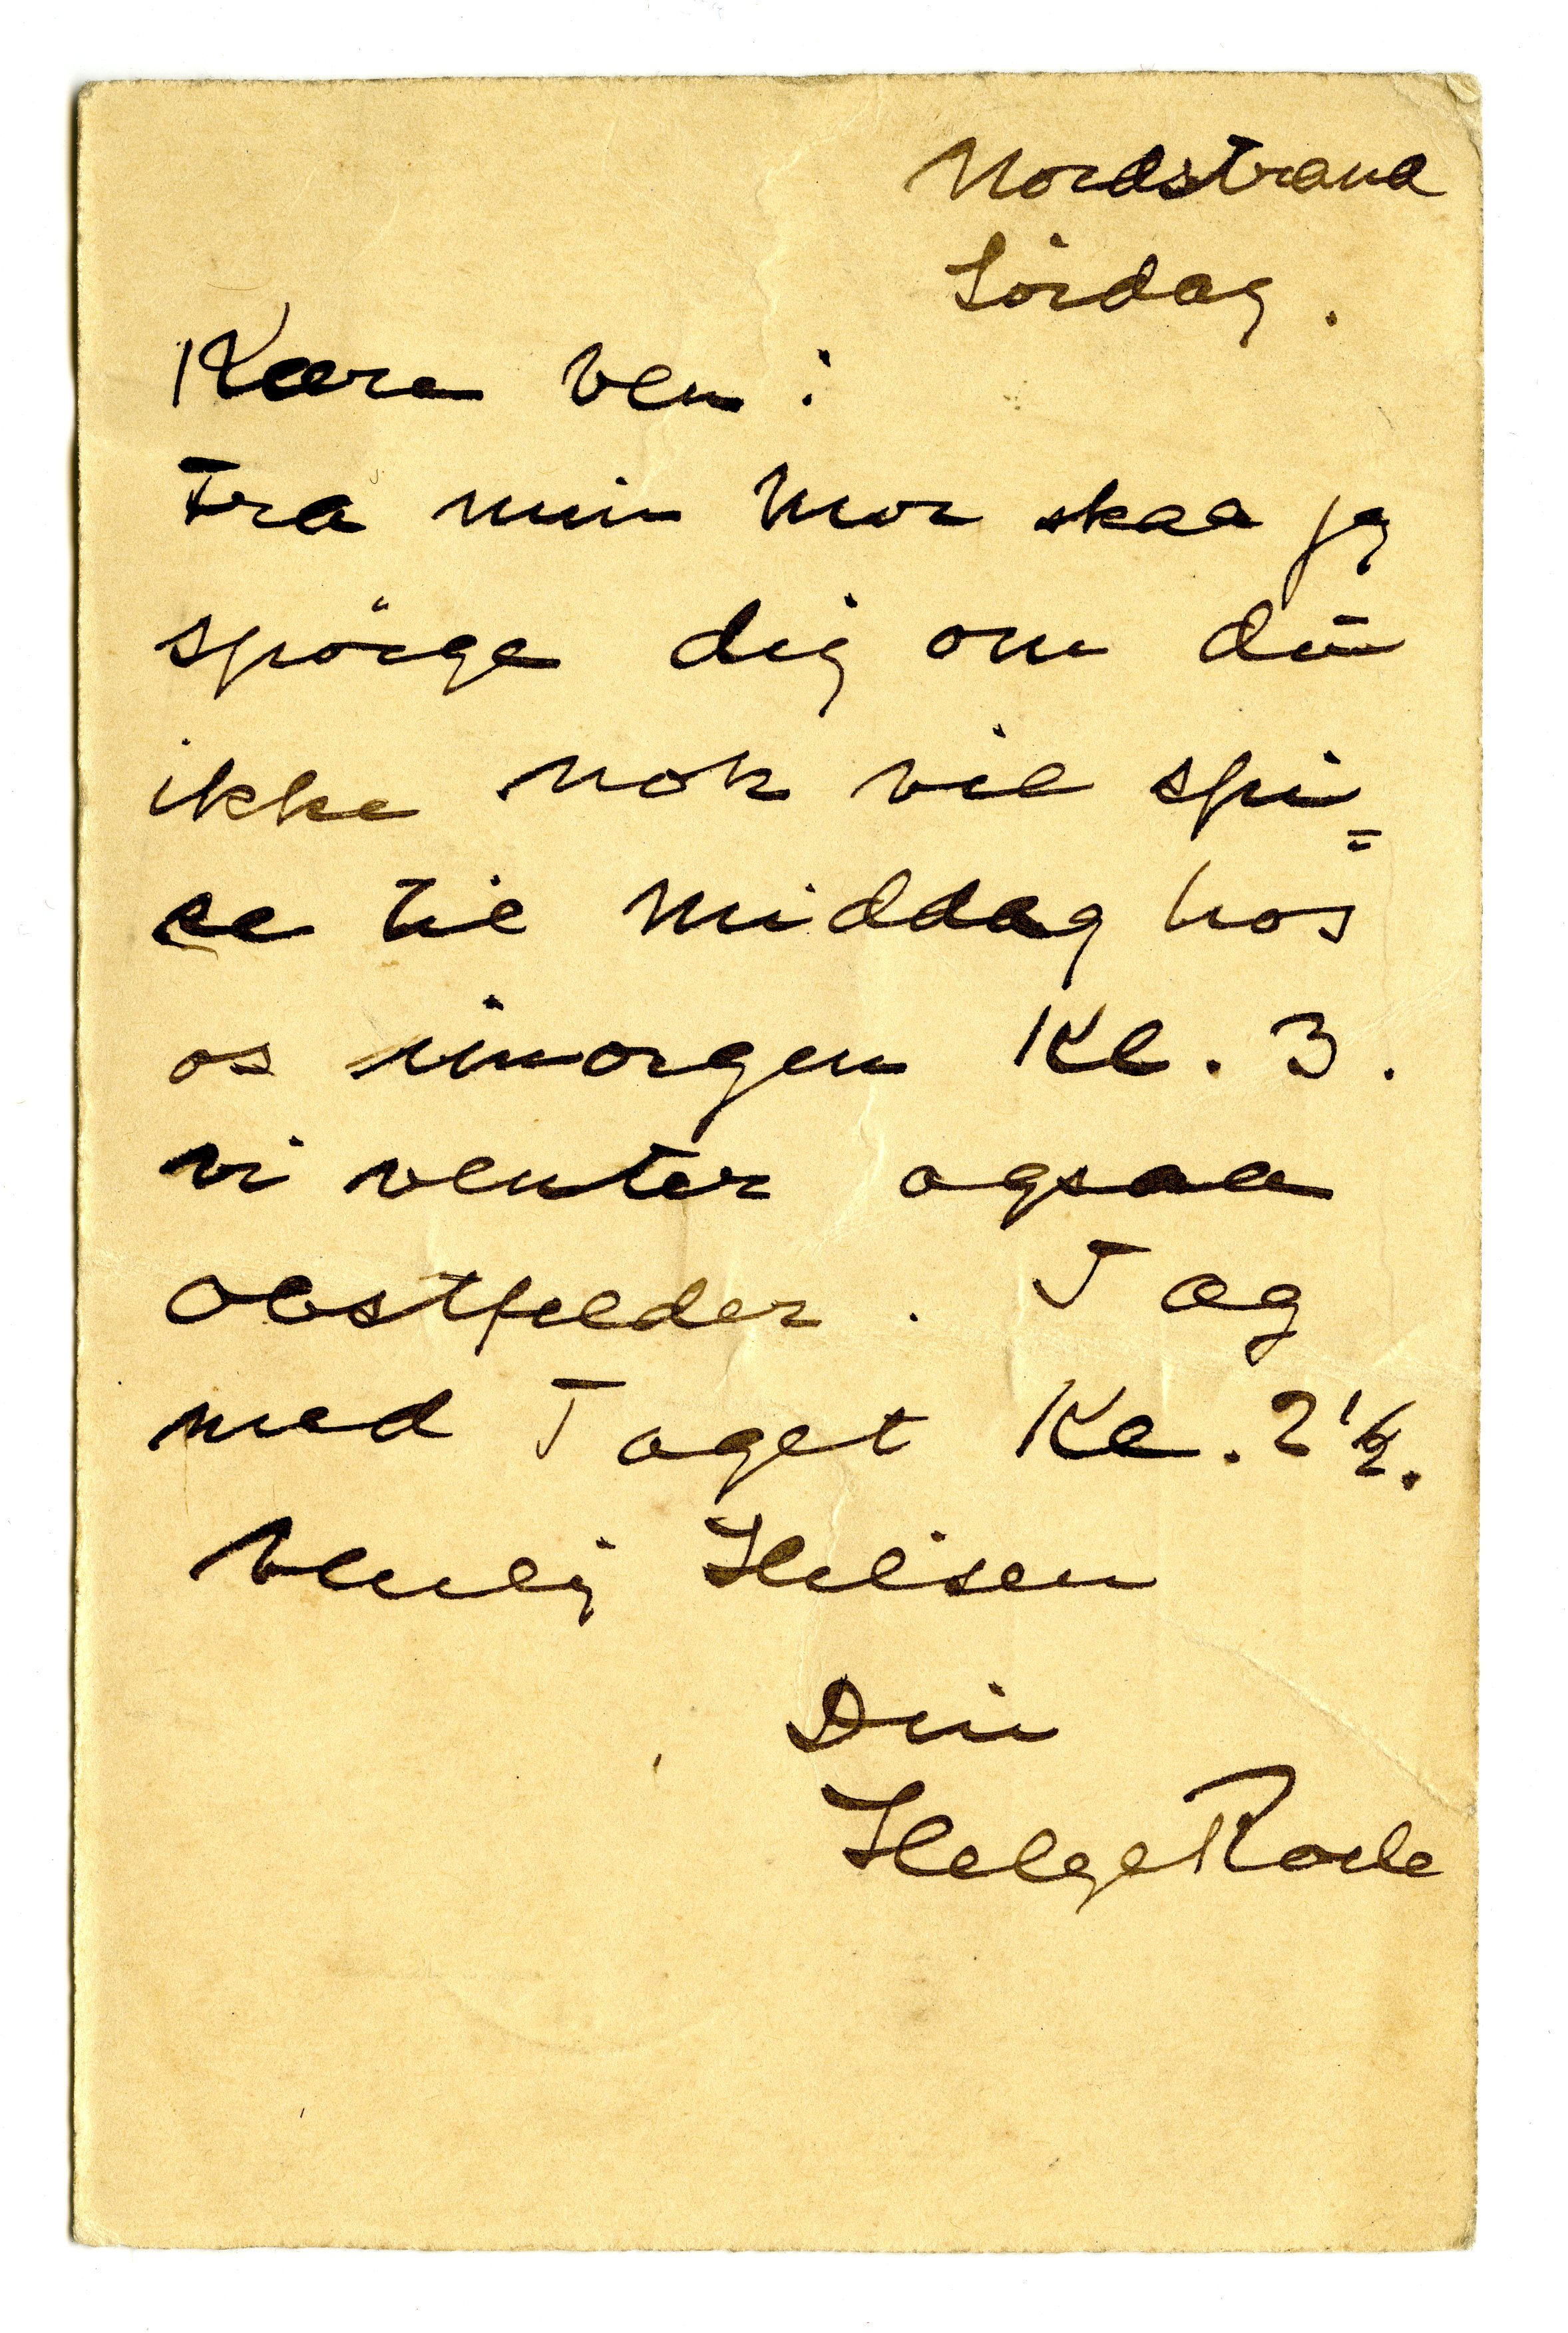 Nordstrand
Lördag.
Kære Ven:
Fra min Mor skal jeg
spörge dig om du
ikke nok vil spi=
se til Middag hos
os imorgen Kl. 3.
Vi venter ogsaa
Obstfelder. Tag
med Toget Kl. 2½.
Venlig Hilsen
Din
Helge Rode